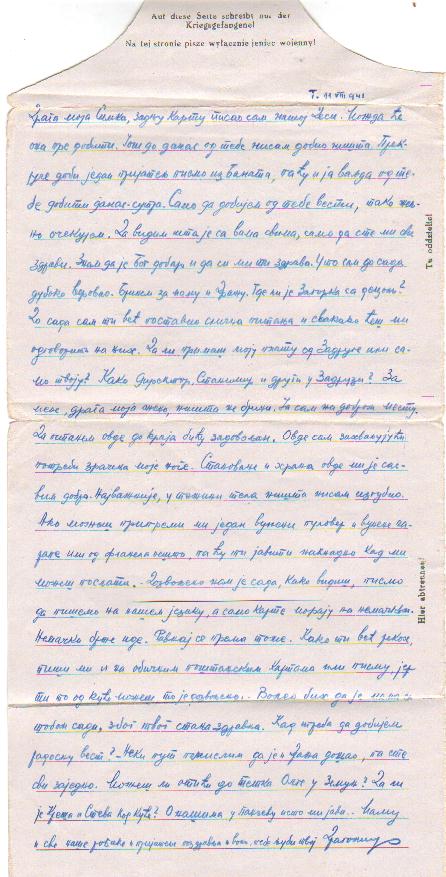 Auf diese Seite schreibt nur der
Kriegsgefangene!
Na tej stronie pisze wyłącznie jeniec wojenny!
Т. 11 VIII 941
Драга моја Симка, задњу карту писао сам нашој Беси. Можда ће
она пре добити. Још до данас од тебе нисам добио ништа. Прек-
јуче доби један пријатељ писмо из Баната, па ћу и ја ваљда од те-
бе добити данас-сутра. Само да добијем од тебе вести, тако жељ-
но очекујем. Да видим шта је са вама свима, само да сте ми сви
здрави. Знам да је Бог добар и да си ми ти здрава. У то сам до сада
дубоко веровао. Бринем за маму и Жану. Где ли је Загорка са децом?
До сада сам ти већ поставио слична питања и свакако ћеш ми
одговорити на њих. Да ли примаш моју плату од Задруге или са-
мо твоју? Како Директор, Станимир и други у Задрузи? За
мене, драга моја жено, ништа не брини. Ја сам на добром месту.
Да останем овде до краја бићу задовољан. Овде сам захваљујући
потреби зрачења моје ноге. Становање и храна овде ми је сас-
вим добра. Најважније, у тежини тела ништа нисам изгубио.
Ако можеш припреми ми један вунени пуловер и вунене ча-
рапе или од фланела нешто, па ћу ти јавити накнадно кад ми
можеш послати. Дозвољено нам је сада, како видиш, писмо
да пишемо на нашем језику, а само карте морају на немачком.
Немачко брже иде. Равнај се према томе. Како ти већ рекох,
пиши ми и на обичним поштанским картама или писму, јер
ти то од куће можеш то је дозвољено. Волео бих да је мама
тобом сада, због твог стања здравља. Кад треба да добијем
радосну вест? Неки пут помислим да је и Жана дошао, па сте
сви заједно. Можеш ли отићи до тетка Олге у Земун? Да ли
је Цвета и Стева код куће? О нашима у Панчеву исто ми јави. Маму
и све наше рођаке и пријатеље поздрави а воли, тебе љуби твој Драгомир
Tu oddzielić!
Hier abtrennen!